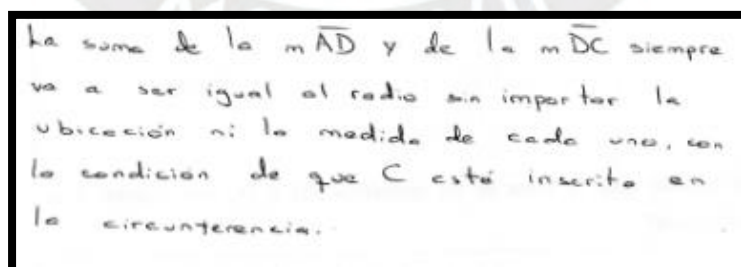 La suma de la m AD y de la m DC siempre
va a ser igual al radio sin importar la
ubicación ni la medida de cada uno, con
la condición de que C esté inscrita en
la circunferencia.